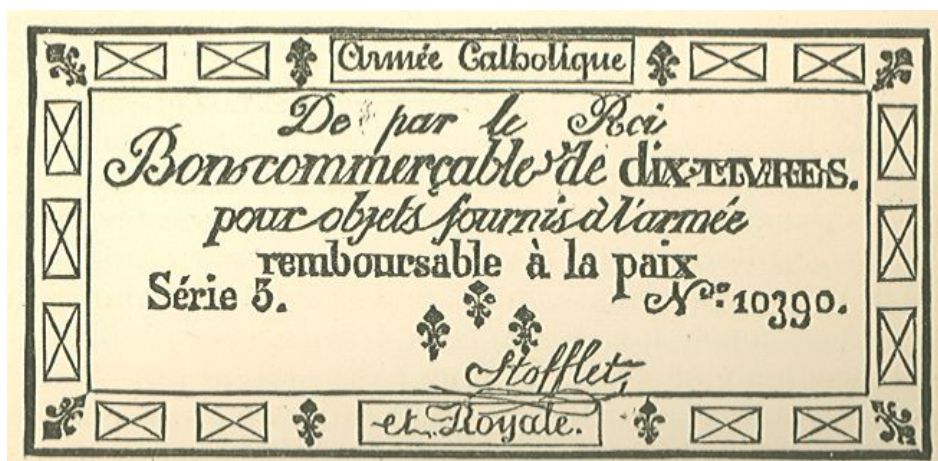 Armée Catholique
De par le Roi
Bon commerçable de dix LIVRES.
pour objets fournis à l'armée
remboursable à la paix
Série 3. N.º 10390.
Stofflet,
et Royale.